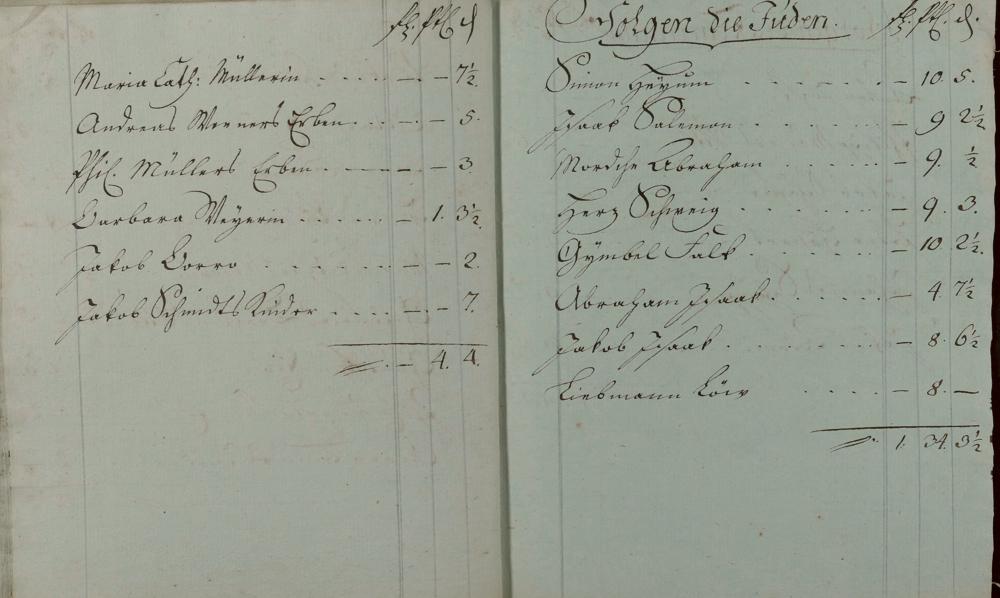 fl. ß. d.
Maria Cath: Müllerin . . . . . — — 7½
Andreas Werners Erben. . . . — — 5.
Phil. Müllers Erben. . . . — — 3.
Barbara Weyerin . . . . . — 1. 3½.
Jakob Borro . . . . . . — — 2.
Jakob Schmidts Kinder . . . . — — 7.
— 4. 4.
Folgen die Juden. fl. ß. d.
Simon Heyum . . . . . . — 10. 5.
Isaak Salemon . . . . . . — 9 2½
Mordche Abraham . . . . . — 9. ½
Herz Schweig . . . . . . — 9. 3.
Gÿmbel Falk . . . . . . — 10. 2½.
Abraham Isaak . . . . . . — 4. 7½
Jakob Isaak . . . . . . — 8. 6½
Liebmann Löw . . . . . — 8. —
1. 34. 3½